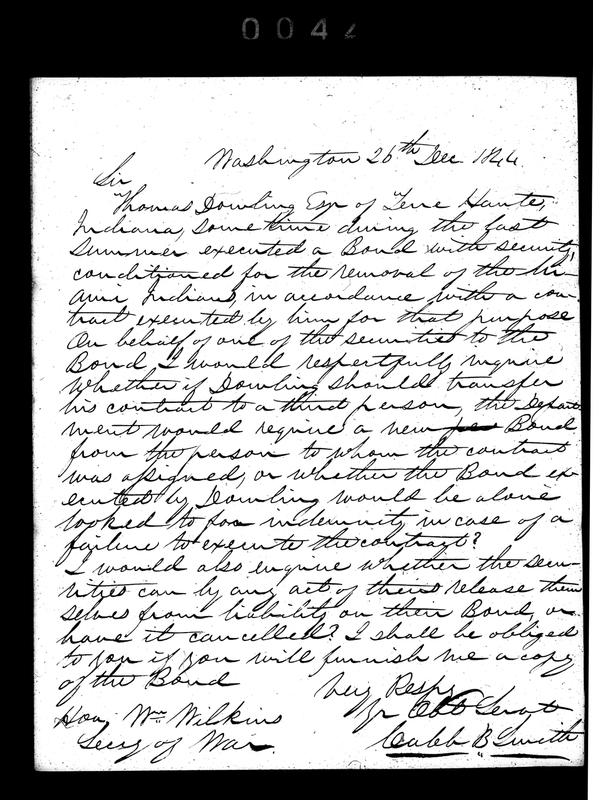 0042
Washington 26th Dec 1844.
Sir
Thomas Dowling Esqr of Terre Haute,
Indiana, some time during the last
summer executed a Bond with security,
conditioned for the removal of the Mi-
ami Indians, in accordance with a con-
tract executed by him for that purpose
On behalf of one of the securities to the
Bond I would respectfully inquire
whether if Dowling should transfer
his contract to a third person, the Depart
ment would require a new Bond
from the person to whom the contract
was assigned, or whether the Bond ex-
ecuted by Dowling would be alone
looked to for indemnity in case of a
failure to execute the contract?
I would also enquire whether the secu-
rities can by any act of theirs release them
selves from liability on their Bond, or
have it cancelled? I shall be obliged
to you if you will furnish me a copy
of the Bond
Very Respy
Yr Obt Servt
Hon. Wm Wilkins
Caleb B. Smith
Secy of War.